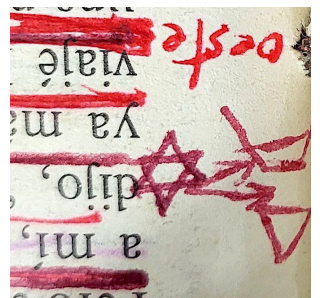 a mí,
dijo,
ya ma
viajé
oeste